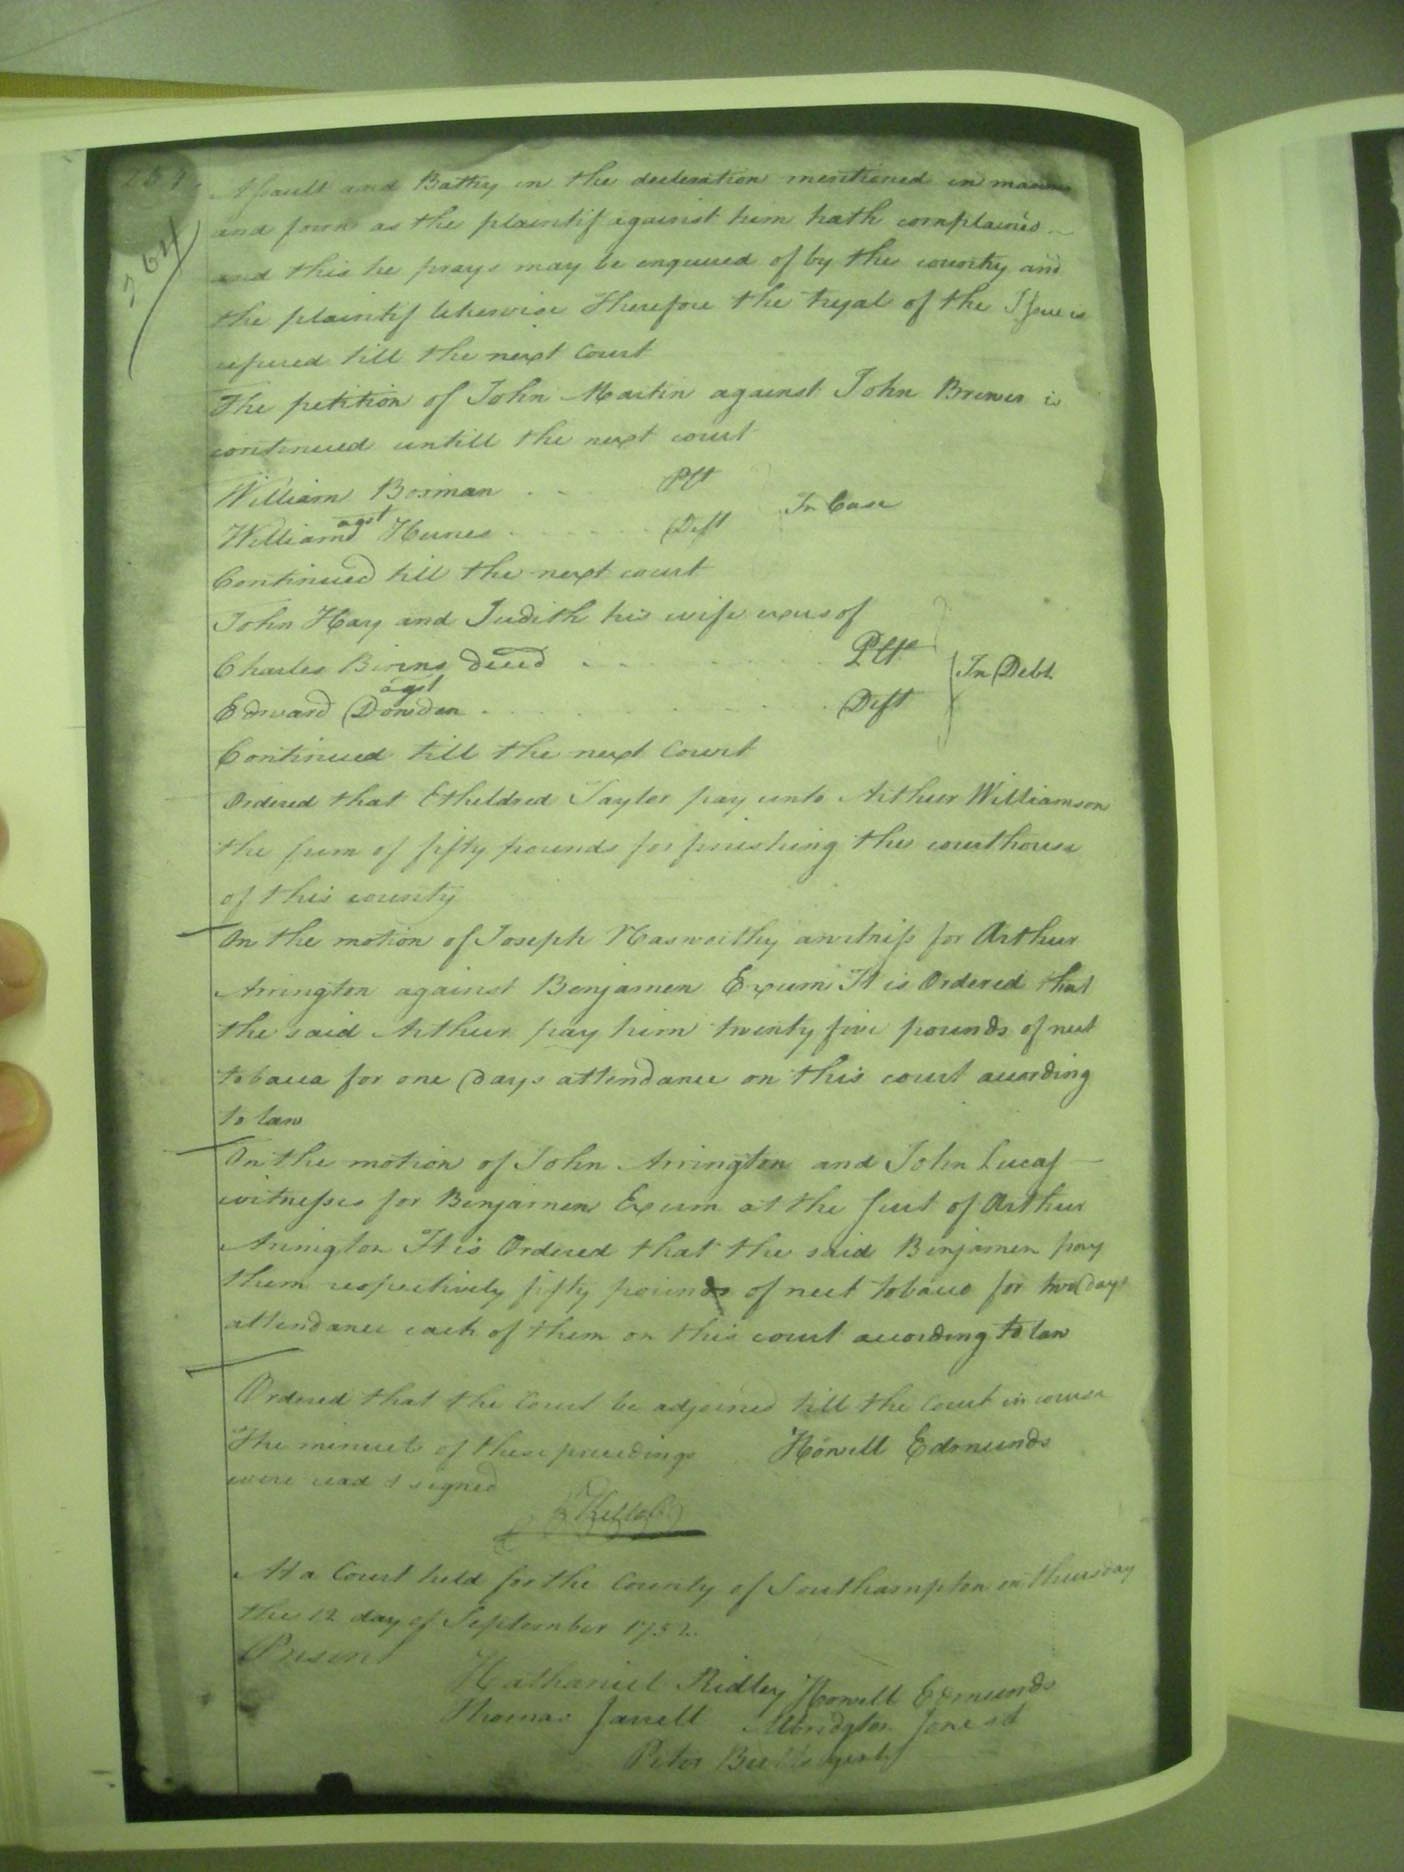 264
Assault and Battry in the decleration mentioned in manner
and form as the plaintif against him hath complained
and this he prays may be enquired of by the county and
the plaintif likewise Therefore the tryal of the Issue is
refured till the next Court
The petition of John Martin against John Brewer is
continued untill the next court
William Boxman Plt
agst In Case
William Hines Deft
Continued till the next court
John Hay and Judith his wife exrs of
Charles Binns Decd Plts
agst In Debt
Edward Dowden Deft
Continued till the next Court
Ordered that Etheldred Taylor pay unto Arthur Williamson
the sum of fifty pounds for finishing the courthouse
of this county
On the motion of Joseph Nasworthy a witness for Arthur
Arrington against Benjamen Exum It is Ordered that
the said Arthur pay him twenty five pounds of nett
tobacca for one Days attendance on this court according
to law
On the motion of John Arrington and John Lucas
witnesses for Benjamen Exum at the suit of Arthur
Arrington It is Ordered that the said Benjamen pay
them respectively fifty pounds of nett tobacco for two Days
attendance each of them on this court according to law
Ordered that the Court be adjoined till the Court in course
The minuets of these preedings Howell Edmunds
were read & signed
At a Court held for the County of Southampton on thursday
the 12 day of September 1752
Present
Nathaniel Ridley Howell Edmunds
Thomas Jarrell Albridgton Jones
Peter Butts gent